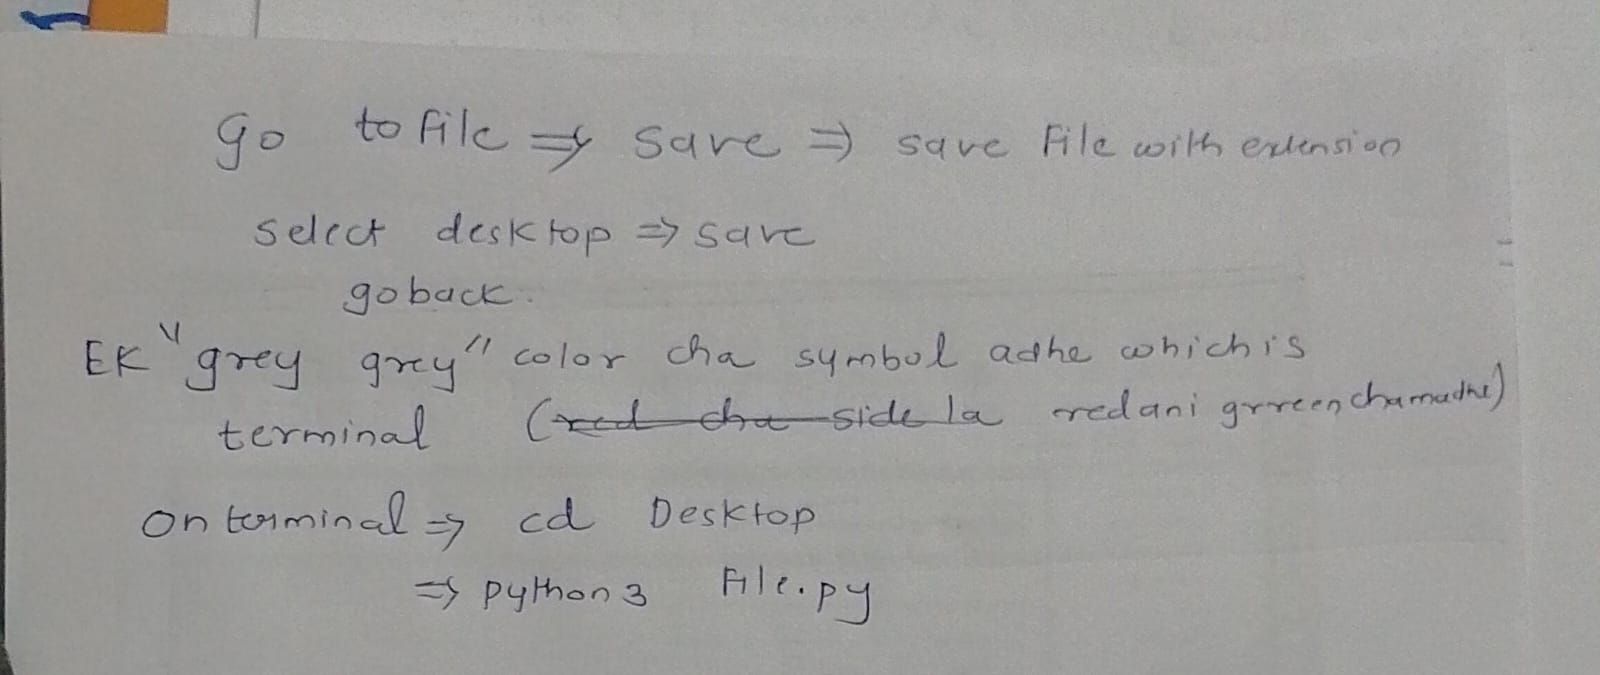 Go to file ⇒ save ⇒ save file with extension
select desktop ⇒ save
go back.
EK "grey grey" color cha symbol adhe which is
terminal (red cha side la red ani grreen cha madhe)
On terminal ⇒ cd Desktop
⇒ python3 File.py